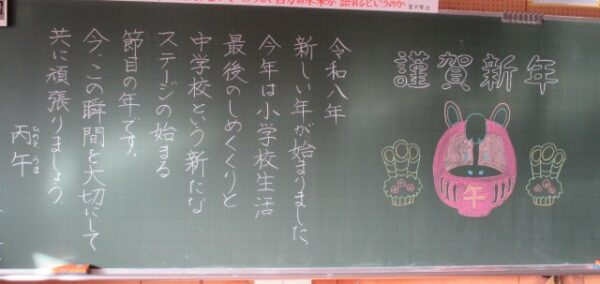 謹賀新年
令和八年
新しい年が始まりました。
今年は小学校生活
最後のしめくくりと
中学校という新たな
ステージの始まる
節目の年です。
今、この瞬間を大切にして
共に頑張りましょう。
丙午
ひのえ うま
午